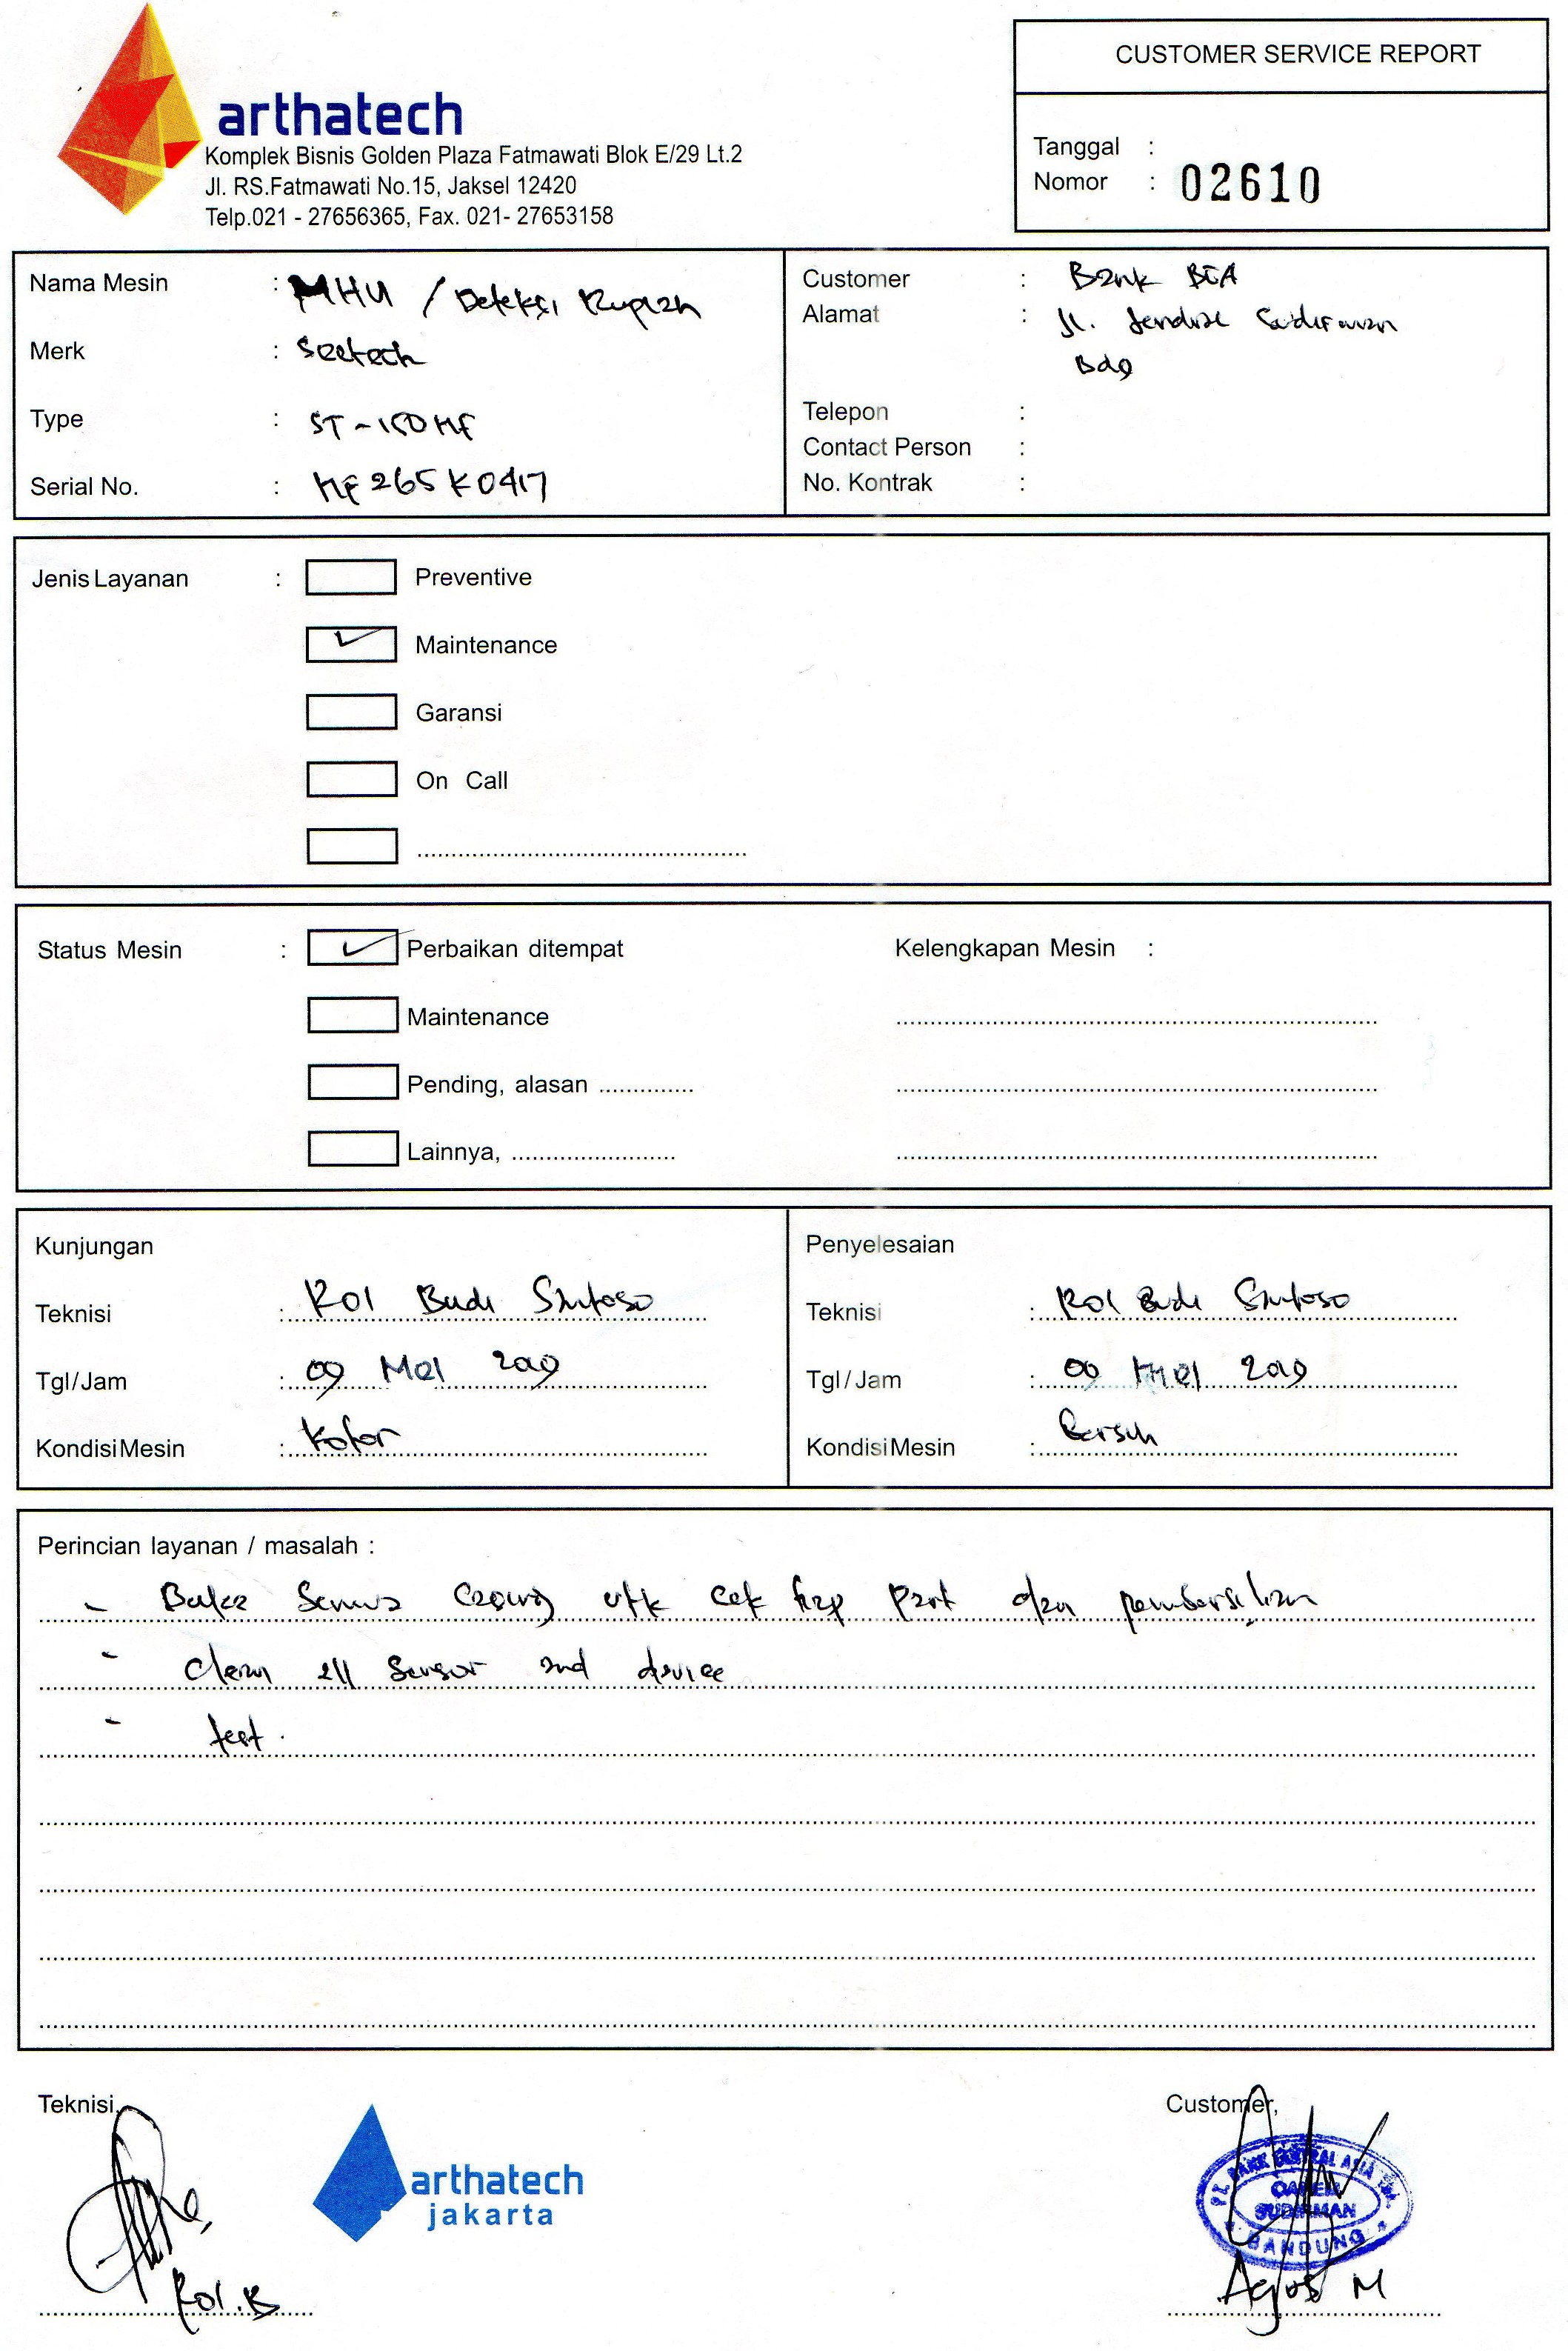 arthatech
Komplek Bisnis Golden Plaza Fatmawati Blok E/29 Lt.2
Jl. RS.Fatmawati No.15, Jaksel 12420
Telp.021 - 27656365, Fax. 021- 27653158
CUSTOMER SERVICE REPORT
Tanggal :
Nomor : 02610
Nama Mesin : MHU / Deteksi Rupiah
Merk : Seetech
Type : ST-150 MF
Serial No. : MF265K0417
Customer : Bank BCA
Alamat : Jl. Jendral Sudirman
Bdg
Telepon :
Contact Person :
No. Kontrak :
Jenis Layanan :
Preventive
Maintenance
Garansi
On Call
Status Mesin : Perbaikan ditempat
Maintenance
Pending, alasan
Lainnya,
Kelengkapan Mesin :
Kunjungan
Teknisi : Roi Budi Santoso
Tgl/Jam : 09 Mei 2019
Kondisi Mesin : Kotor
Penyelesaian
Teknisi : Roi Budi Santoso
Tgl/Jam : 09 Mei 2019
Kondisi Mesin : Bersih
Perincian layanan / masalah :
- Buka Semua Casing utk cek tiap part dan pembersihan
- clean all Sensor and device
- test.
Teknisi,
arthatech
jakarta
Roi.B
Customer,
PT. BANK CENTRAL ASIA Tbk.
CAPEM
SUDIRMAN
BANDUNG
Agus M